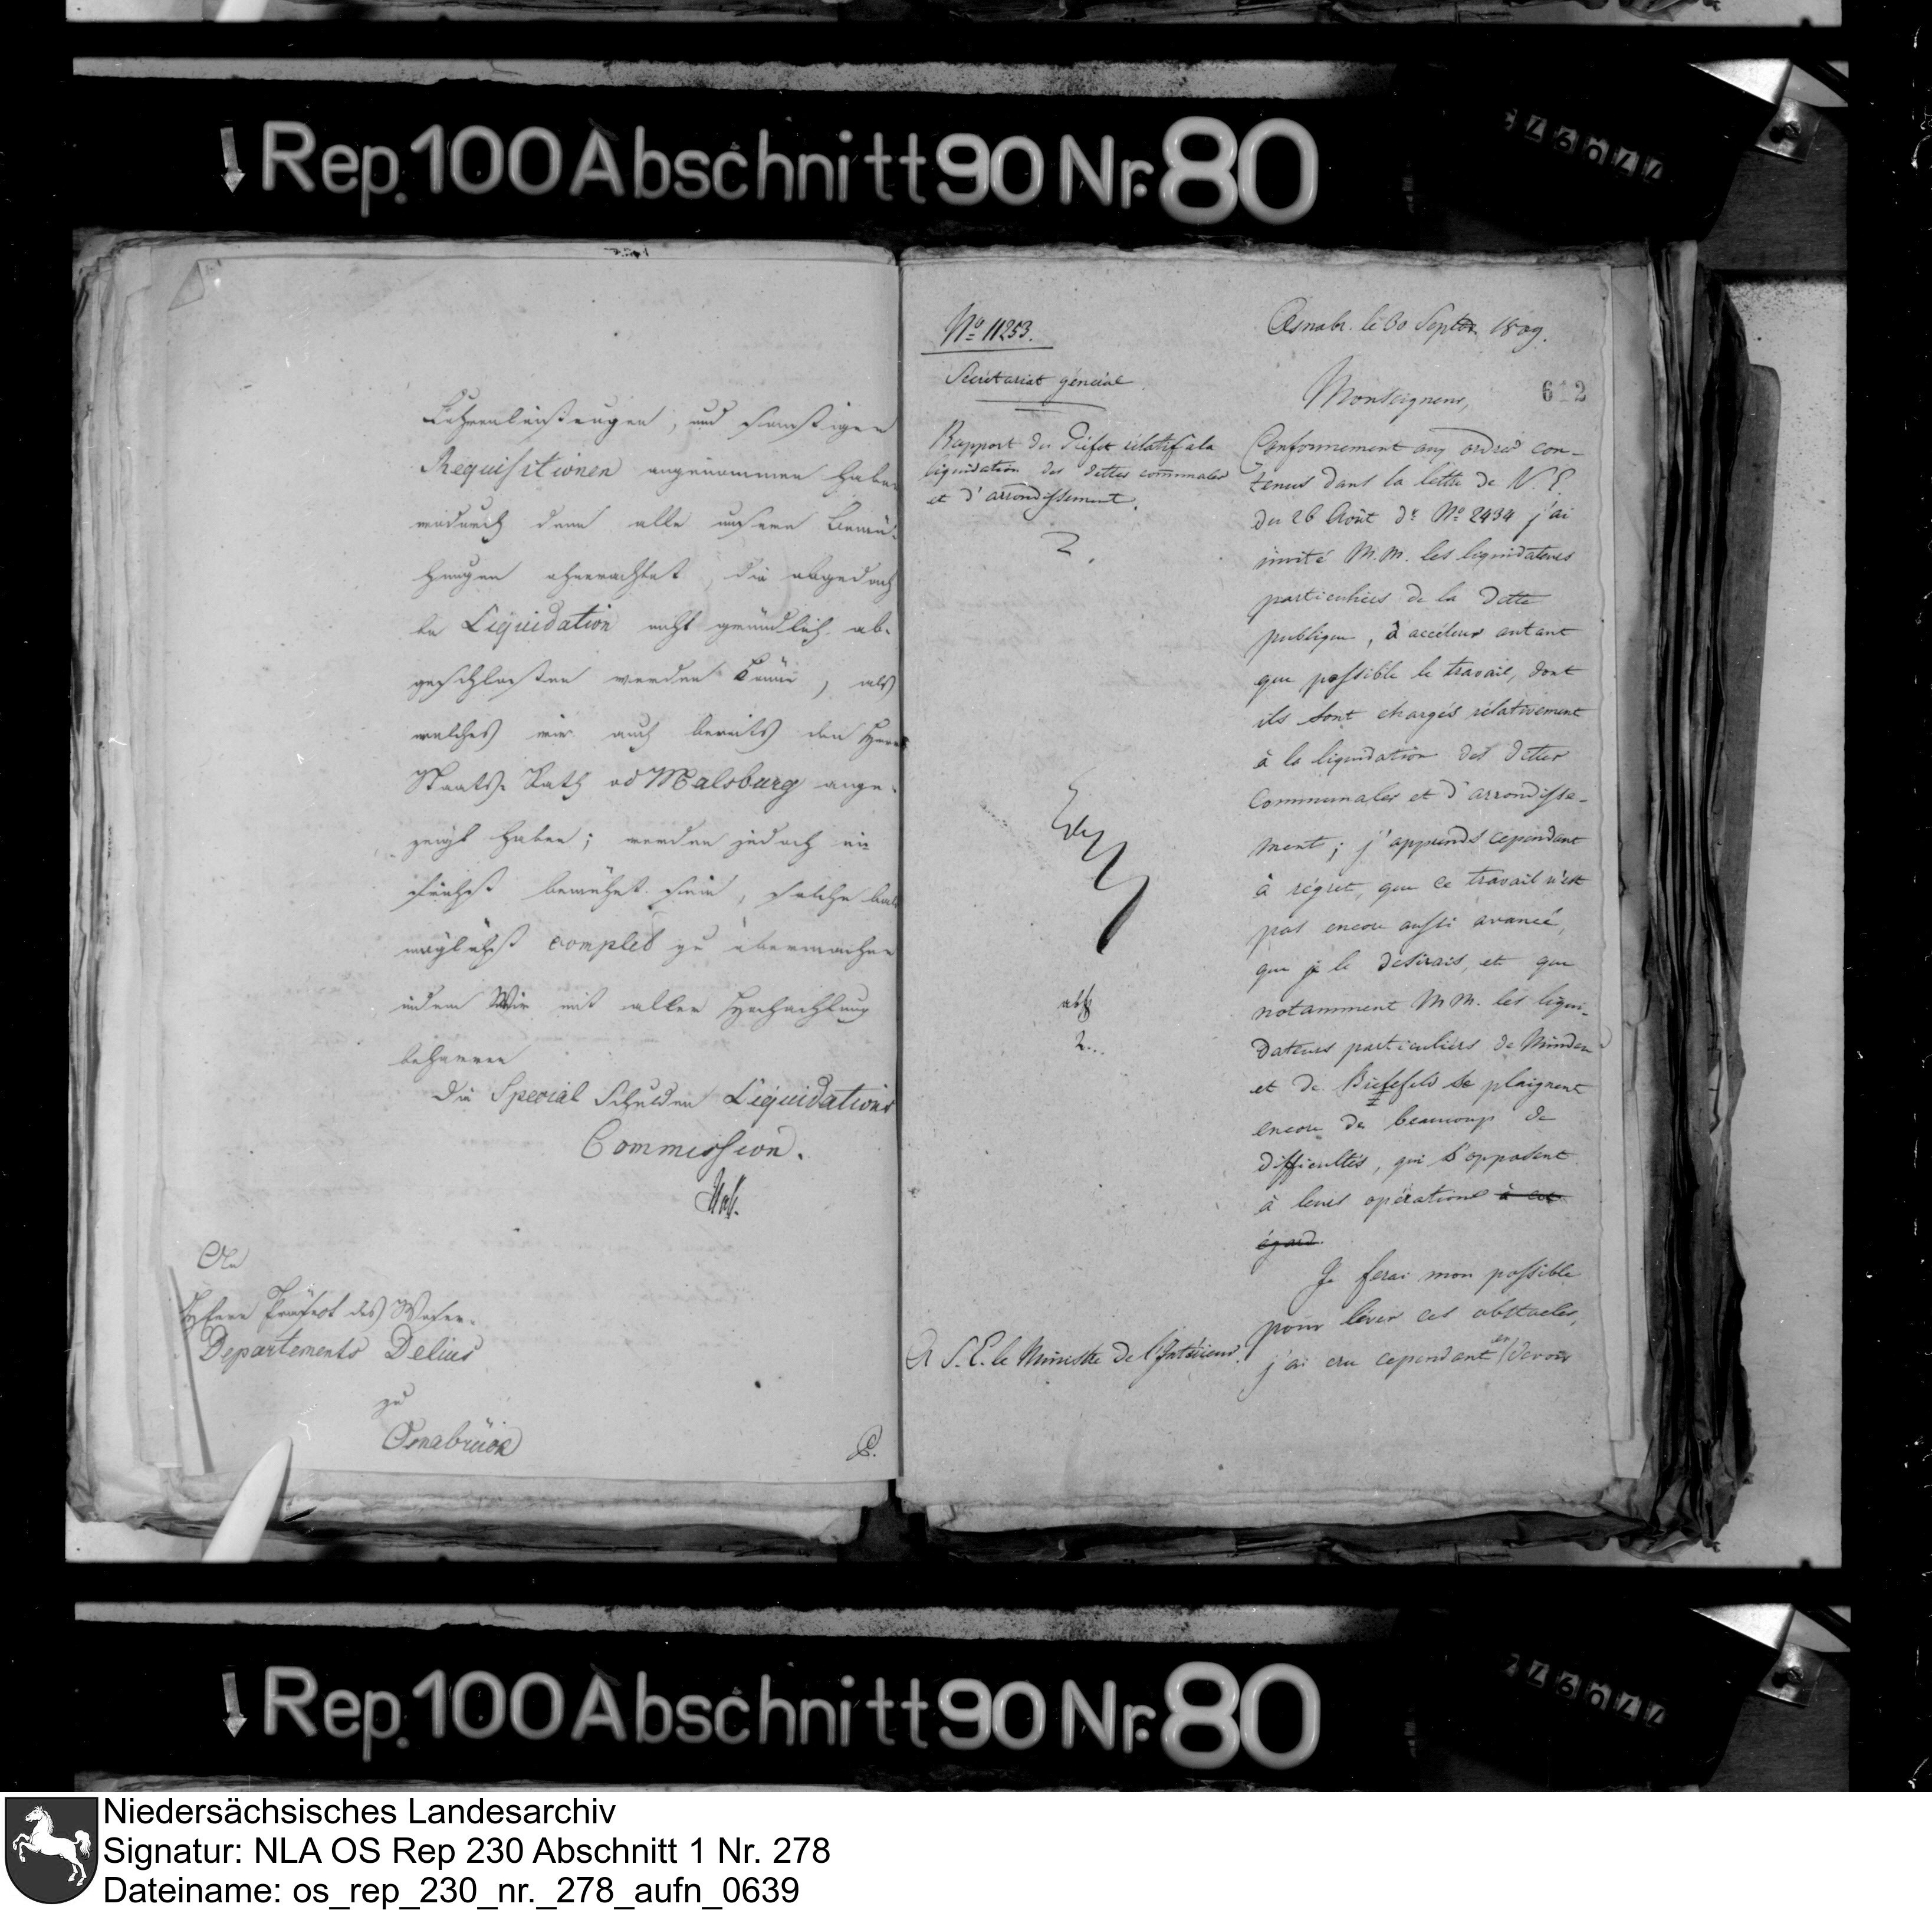 ↓Rep.100 Abschnitt 90 Nr. 80
Fuhrenleistungen, und sonstigen
Requisitionen angenommen haben
wodurch denn alle unsere Bemü-
hungen ohnerachtet, die abgedach
te Liquidation nicht gründlich ab-
geschloßen werden könne, als
welches wir auch bereits den Herrn
Staats-Rath von Malsburg ange-
zeigt haben; werden jedoch
bemühet sein, solche bald
möglichst complet zu übermachen
indem Wir mit aller Hochachtung
beharren
Die Special Schulden Liquidations
Commission.
An
Herrn Präfect des Weser-
Departements Delius
zu
Osnabrück
No 11253.
Secrétariat général
Rapport du Préfet rélatif à la
liquidation des dettes communales
et d'arrondissement.
A S. E. le Ministre de l'Intérieur.
Osnabr. le 30 Septbr. 1809.
612
Monseigneur,
Conformement aux ordres con-
tenus dans la lettre de V. E.
du 26 Août dr No 2434 j'ai
invité M.M. les liquidateurs
particuliers de la dette
publique, à accélerer autant
que possible le travail, dont
ils sont chargés rélativement
à la liquidation des dettes
communales et d'arrondisse-
ment; j'apprends cependant
à régret, que ce travail n'est
pas encore aussi avancé,
que je le désirais, et que
notamment MM. les liqui-
dateurs particuliers de Minden
et de Bielefeld se plaignent
encore de beaucoup de
difficultés, qui s'opposent
à leurs opérations à cet
égard.
Je ferai mon possible
pour lever ces obstacles,
j'ai cru cependant en devoir
↓Rep.100 Abschnitt 90 Nr. 80
Niedersächsisches Landesarchiv
Signatur: NLA OS Rep 230 Abschnitt 1 Nr. 278
Dateiname: os_rep_230_nr._278_aufn_0639